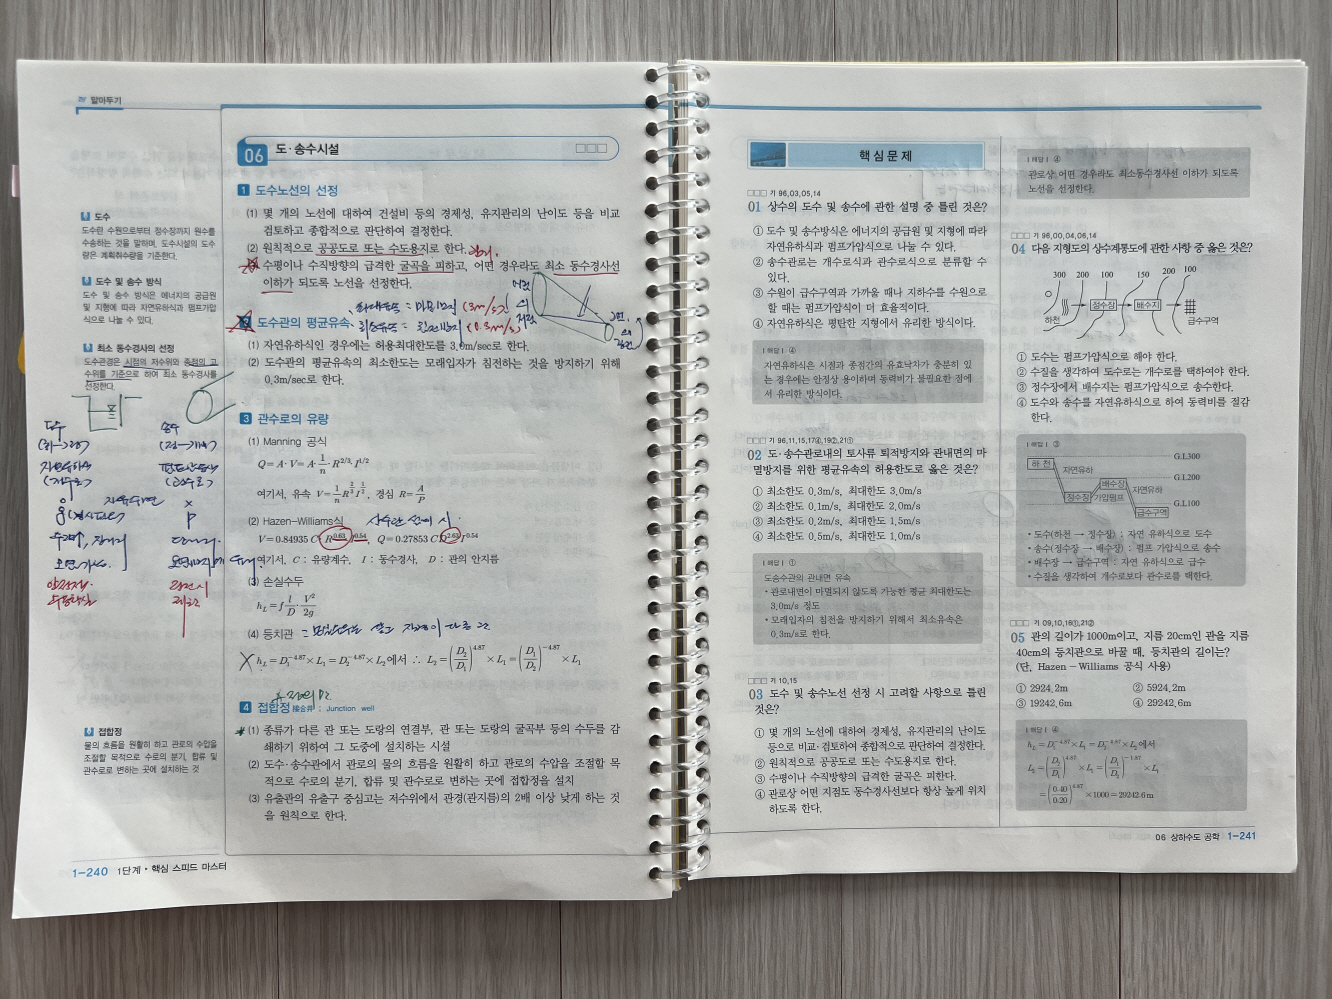 알아두기
06 도·송수시설
1 도수노선의 선정
(1) 몇 개의 노선에 대하여 건설비 등의 경제성, 유지관리의 난이도 등을 비교
검토하고 종합적으로 판단하여 결정한다.
(2) 원칙적으로 공공도로 또는 수도용지로 한다.
수평이나 수직방향의 급격한 굴곡을 피하고, 어떤 경우라도 최소 동수경사선
이하가 되도록 노선을 선정한다.
최대유속 = 마모방지 (3m/s)
최소유속 = 침전방지 (0.3m/s)
도수관의 평균유속
(1) 자연유하식인 경우에는 허용최대한도를 3.0m/s로 한다.
(2) 도수관의 평균유속의 최소한도는 모래입자가 침전하는 것을 방지하기 위해
0.3m/sec로 한다.
3 관수로의 유량
(1) Manning 공식
Q=A·V=A·1/n·R^2/3·I^1/2
여기서, 유속 V=1/n R^2/3 I^1/2, 경심 R=A/P
(2) Hazen-Williams식
V=0.84935 C·R^0.63·I^0.54, Q=0.27853 C D^2.63 I^0.54
여기서, C : 유량계수, I : 동수경사, D : 관의 안지름
(3) 손실수두
h_L=f l/D·V²/2g
(4) 등치관
h_L=D₁^-4.87×L₁=D₂^-4.87×L₂에서 ∴ L₂=(D₂/D₁)^4.87×L₁=(D₁/D₂)^-4.87×L₁
4 접합정 接合井 : Junction well
(1) 종류가 다른 관 또는 도랑의 연결부, 관 또는 도랑의 굴곡부 등의 수두를 감
쇄하기 위하여 그 도중에 설치하는 시설
(2) 도수·송수관에서 관로의 물의 흐름을 원활히 하고 관로의 수압을 조절할 목
적으로 수로의 분기, 합류 및 관수로로 변하는 곳에 접합정을 설치
(3) 유출관의 유출구 중심고는 저수위에서 관경(관지름)의 2배 이상 낮게 하는 것
을 원칙으로 한다.
도수
도수란 수원으로부터 정수장까지 원수를
수송하는 것을 말하며, 도수시설의 도수
량은 계획취수량을 기준한다.
도수 및 송수 방식
도수 및 송수 방식은 에너지의 공급원
및 지형에 따라 자연유하식과 펌프가압
식으로 나눌 수 있다.
최소 동수경사의 선정
도수관경은 시점의 저수위와 종점의 고
수위를 기준으로 하여 최소 동수경사를
선정한다.
도수
송수
자유수면
×
P
접합정
물의 흐름을 원활히 하고 관로의 수압을
조절할 목적으로 수로의 분기, 합류 및
관수로로 변하는 곳에 설치하는 것
1-240 1단계·핵심 스피드 마스터
핵심문제
기 96,03,05,14
01 상수의 도수 및 송수에 관한 설명 중 틀린 것은?
① 도수 및 송수방식은 에너지의 공급원 및 지형에 따라
자연유하식과 펌프가압식으로 나눌 수 있다.
② 송수관로는 개수로식과 관수로식으로 분류할 수
있다.
③ 수원이 급수구역과 가까울 때나 지하수를 수원으로
할 때는 펌프가압식이 더 효율적이다.
④ 자연유하식은 평탄한 지형에서 유리한 방식이다.
|해답| ④
자연유하식은 시점과 종점간의 유효낙차가 충분히 있
는 경우에는 안정상 용이하며 동력비가 불필요한 점에
서 유리한 방식이다.
기 96,11,15,17④,19②,21①
02 도·송수관로내의 토사류 퇴적방지와 관내면의 마
멸방지를 위한 평균유속의 허용한도로 옳은 것은?
① 최소한도 0.3m/s, 최대한도 3.0m/s
② 최소한도 0.1m/s, 최대한도 2.0m/s
③ 최소한도 0.2m/s, 최대한도 1.5m/s
④ 최소한도 0.5m/s, 최대한도 1.0m/s
|해답| ①
도송수관의 관내면 유속
• 관로내면이 마멸되지 않도록 가능한 평균 최대한도는
3.0m/s 정도
• 모래입자의 침전을 방지하기 위해서 최소유속은
0.3m/s로 한다.
기 10,15
03 도수 및 송수노선 선정 시 고려할 사항으로 틀린
것은?
① 몇 개의 노선에 대하여 경제성, 유지관리의 난이도
등으로 비교·검토하여 종합적으로 판단하여 결정한다.
② 원칙적으로 공공도로 또는 수도용지로 한다.
③ 수평이나 수직방향의 급격한 굴곡은 피한다.
④ 관로상 어떤 지점도 동수경사선보다 항상 높게 위치
하도록 한다.
|해답| ④
관로상 어떤 경우라도 최소동수경사선 이하가 되도록
노선을 선정한다.
기 96,00,04,06,14
04 다음 지형도의 상수계통도에 관한 사항 중 옳은 것은?
300 200 100 150 200 100
하천 정수장 배수지 급수구역
① 도수는 펌프가압식으로 해야 한다.
② 수질을 생각하여 도수로는 개수로를 택하여야 한다.
③ 정수장에서 배수지는 펌프가압식으로 송수한다.
④ 도수와 송수를 자연유하식으로 하여 동력비를 절감
한다.
|해답| ③
하천 G.L300
자연유하
배수장 G.L200
자연유하
정수장 가압펌프 G.L100
급수구역
• 도수(하천 → 정수장) : 자연 유하식으로 도수
• 송수(정수장 → 배수장) : 펌프 가압식으로 송수
• 배수장 → 급수구역 : 자연 유하식으로 급수
• 수질을 생각하여 개수로보다 관수로를 택한다.
기 09,10,16①,21②
05 관의 길이가 1000m이고, 지름 20cm인 관을 지름
40cm의 등치관으로 바꿀 때, 등치관의 길이는?
(단, Hazen-Williams 공식 사용)
① 2924.2m ② 5924.2m
③ 19242.6m ④ 29242.6m
|해답| ④
h_L=D₁^-4.87×L₁=D₂^-4.87×L₂에서
L₂=(D₂/D₁)^4.87×L₁=(D₁/D₂)^-4.87×L₁
=(0.40/0.20)^4.87×1000=29242.6m
06 상하수도 공학 1-241